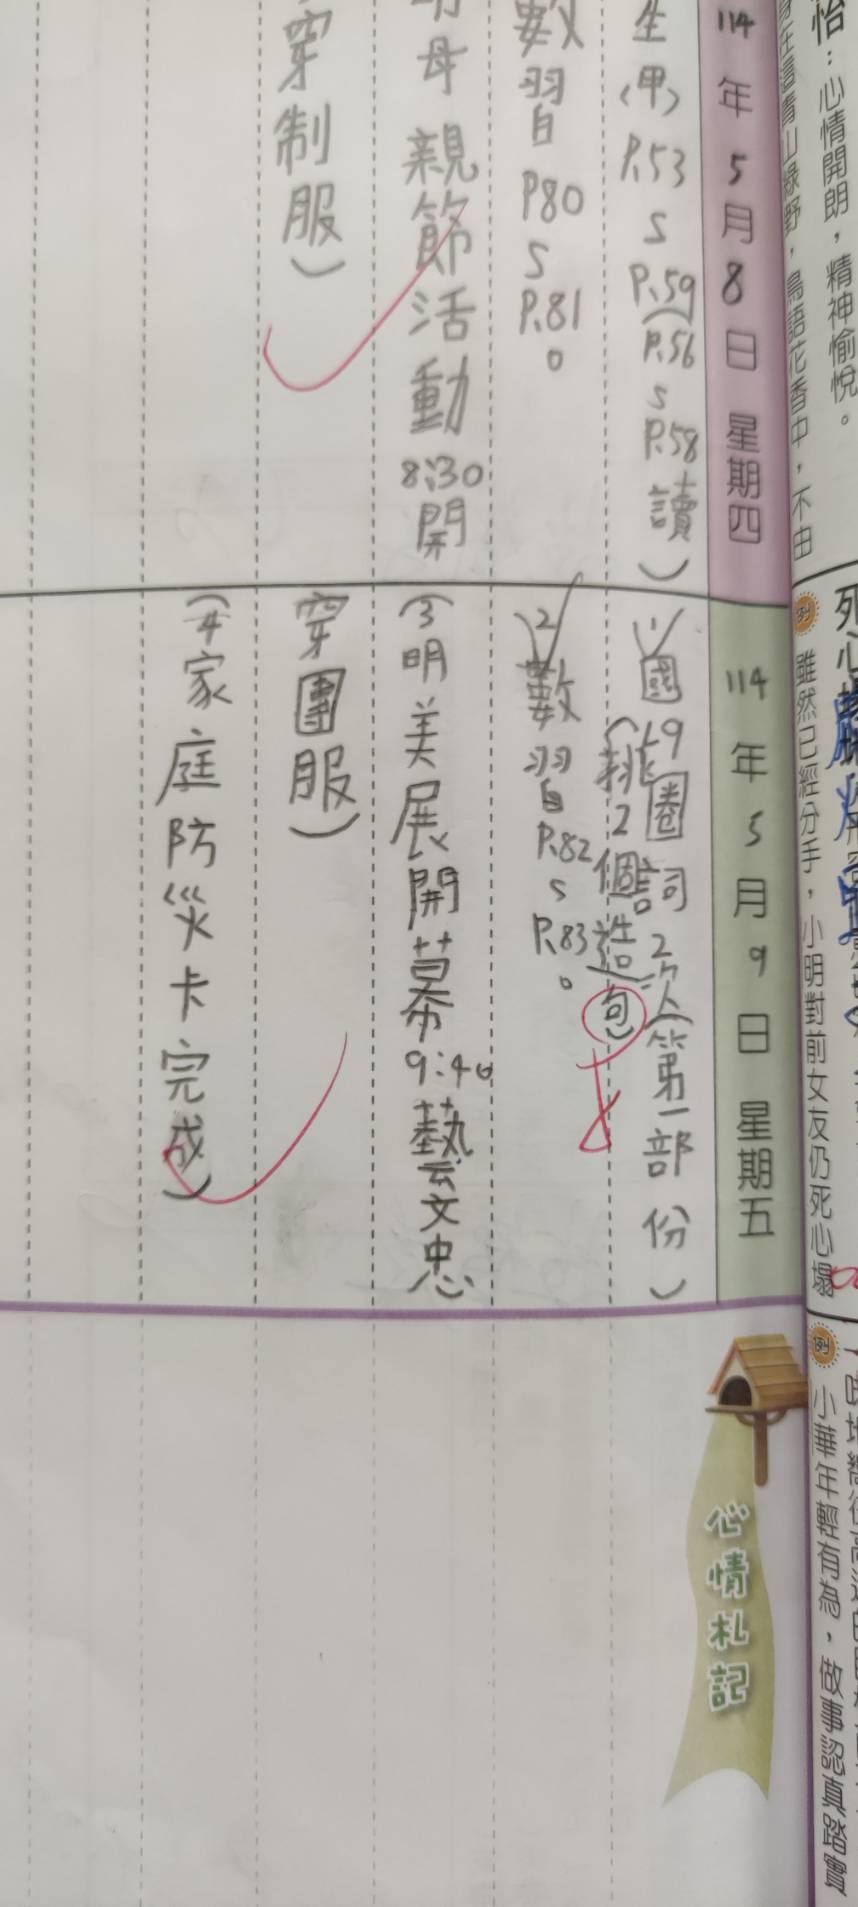 怡：心情開朗，精神愉悅。
身在這青山綠野，鳥語花香中，不由
例 雖然已經分手，小明對前女友仍死心塌
例 小華年輕有為，做事認真踏實
114年5月8日 星期四
生（甲）P.53~P.59（P.56~P.58讀）
數習P80~P.81。
母親節活動8:30開
穿制服）
114年5月9日 星期五
(1)國L9圈詞2次（第一部份）
（挑2個造句）
(2)數習P.82~P.83。
(3明美展開幕9:40藝文忠
穿團服）
(4家庭防災卡完成）
心情札記